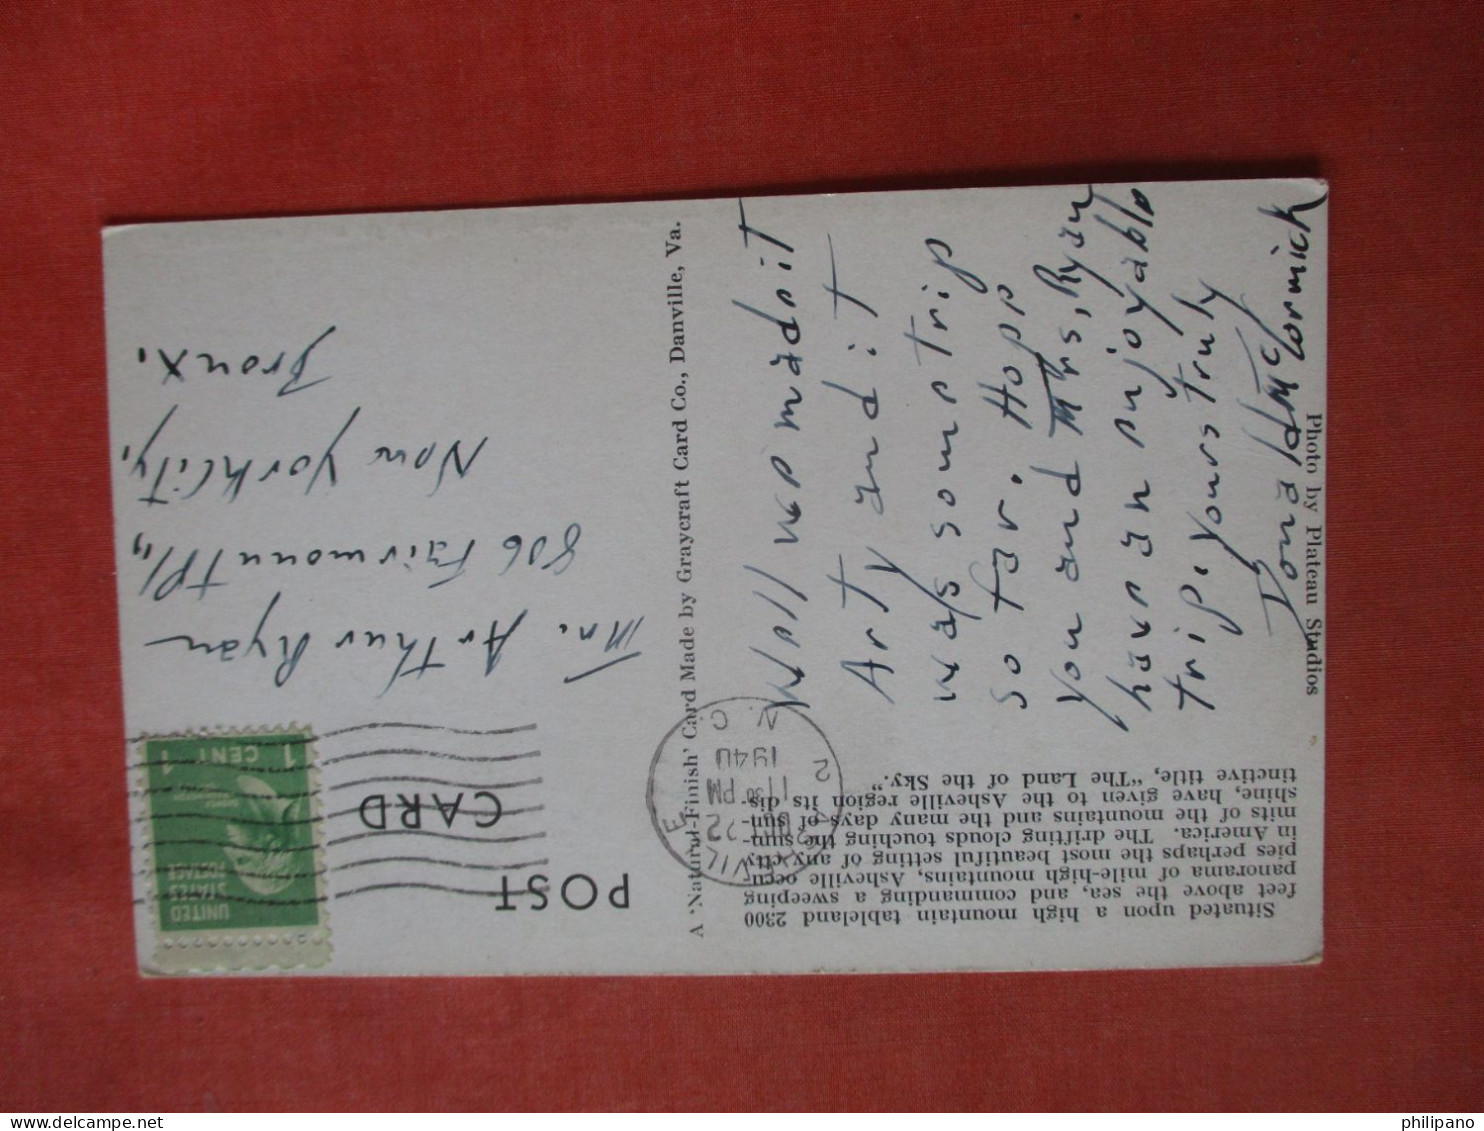 Situated upon a high mountain tableland 2300
feet above the sea, and commanding a sweeping
panorama of mile-high mountains, Asheville occu-
pies perhaps the most beautiful setting of any city
in America. The drifting clouds touching the sum-
mits of the mountains and the many days of sun-
shine, have given to the Asheville region its dis-
tinctive title, "The Land of the Sky."
POST
CARD
UNITED
STATES
POSTAGE
1 CENT 1
ASHEVILLE
OCT 22
11 30 PM
1940
N. C.
2
Well we made it
Arty and it
was some trip
so far. Hope
you and Mrs, Ryan
have an enjoyable
trip. Yours truly
Donald McCormick
Mr. Arthur Ryan
806 Fairmount Pl,,
New York City,
Bronx.
A 'Natural-Finish' Card Made by Graycraft Card Co., Danville, Va.
Photo by Plateau Studios
delcampe.net
philipano